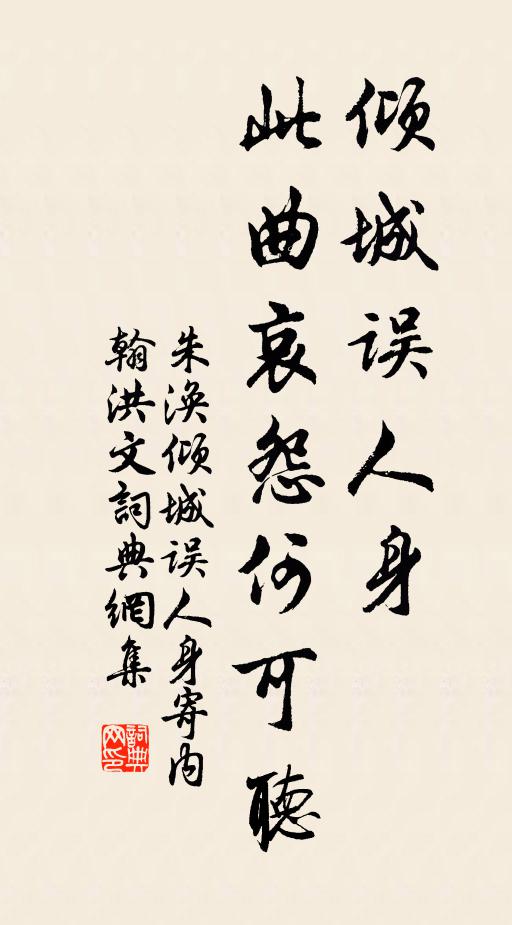 倾城误人身
此曲哀怨何可聽
朱涣倾城误人身寄内
翰洪文詞典網集
詞典
网印